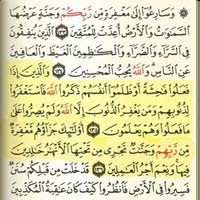 وَسَارِعُوٓا۟ إِلَىٰ مَغْفِرَةٍ مِّن رَّبِّكُمْ وَجَنَّةٍ عَرْضُهَا
ٱلسَّمَٰوَٰتُ وَٱلْأَرْضُ أُعِدَّتْ لِلْمُتَّقِينَ ١٣٣ ٱلَّذِينَ يُنفِقُونَ
فِى ٱلسَّرَّآءِ وَٱلضَّرَّآءِ وَٱلْكَٰظِمِينَ ٱلْغَيْظَ وَٱلْعَافِينَ
عَنِ ٱلنَّاسِ وَٱللَّهُ يُحِبُّ ٱلْمُحْسِنِينَ ١٣٤ وَٱلَّذِينَ إِذَا
فَعَلُوا۟ فَٰحِشَةً أَوْ ظَلَمُوٓا۟ أَنفُسَهُمْ ذَكَرُوا۟ ٱللَّهَ فَٱسْتَغْفَرُوا۟
لِذُنُوبِهِمْ وَمَن يَغْفِرُ ٱلذُّنُوبَ إِلَّا ٱللَّهُ وَلَمْ يُصِرُّوا۟ عَلَىٰ
مَا فَعَلُوا۟ وَهُمْ يَعْلَمُونَ ١٣٥ أُو۟لَٰٓئِكَ جَزَآؤُهُم مَّغْفِرَةٌ
مِّن رَّبِّهِمْ وَجَنَّٰتٌ تَجْرِى مِن تَحْتِهَا ٱلْأَنْهَٰرُ خَٰلِدِينَ
فِيهَا وَنِعْمَ أَجْرُ ٱلْعَٰمِلِينَ ١٣٦ قَدْ خَلَتْ مِن قَبْلِكُمْ سُنَنٌ
فَسِيرُوا۟ فِى ٱلْأَرْضِ فَٱنظُرُوا۟ كَيْفَ كَانَ عَٰقِبَةُ ٱلْمُكَذِّبِينَ